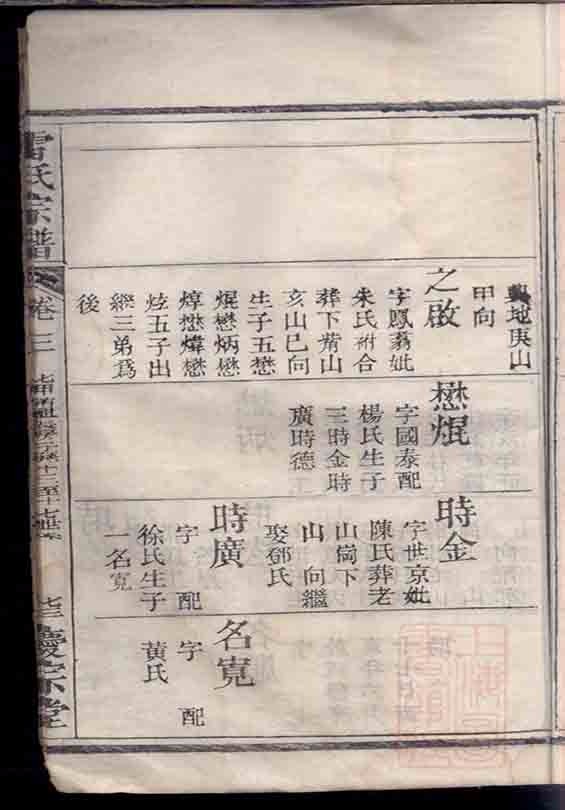 興地庚山
甲向
之啟
字鳳翥妣
朱氏祔合
葬下莆山
亥山巳向
生子五懋
焜懋炳懋
焞懋煒懋
炫五子出
繼三弟為
後
懋焜
字國泰配
楊氏生子
三時金時
廣時德
時金
字世京妣
陳氏葬老
山崗下
山 向繼
娶鄧氏
時廣
字 配
徐氏生子
一名寬
名寬
字 配
黃氏
氏宗譜
卷三
慶宗堂